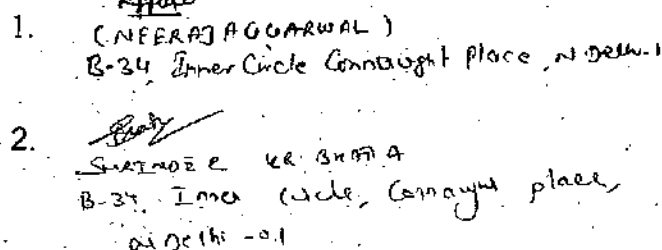 1. (NEERAJ AGGARWAL)
B-34 Inner Circle Connaught Place, N Delhi-1
2.
SURINDER KR. BHATIA
B-34, Inner Circle, Connaught place,
N Delhi -01